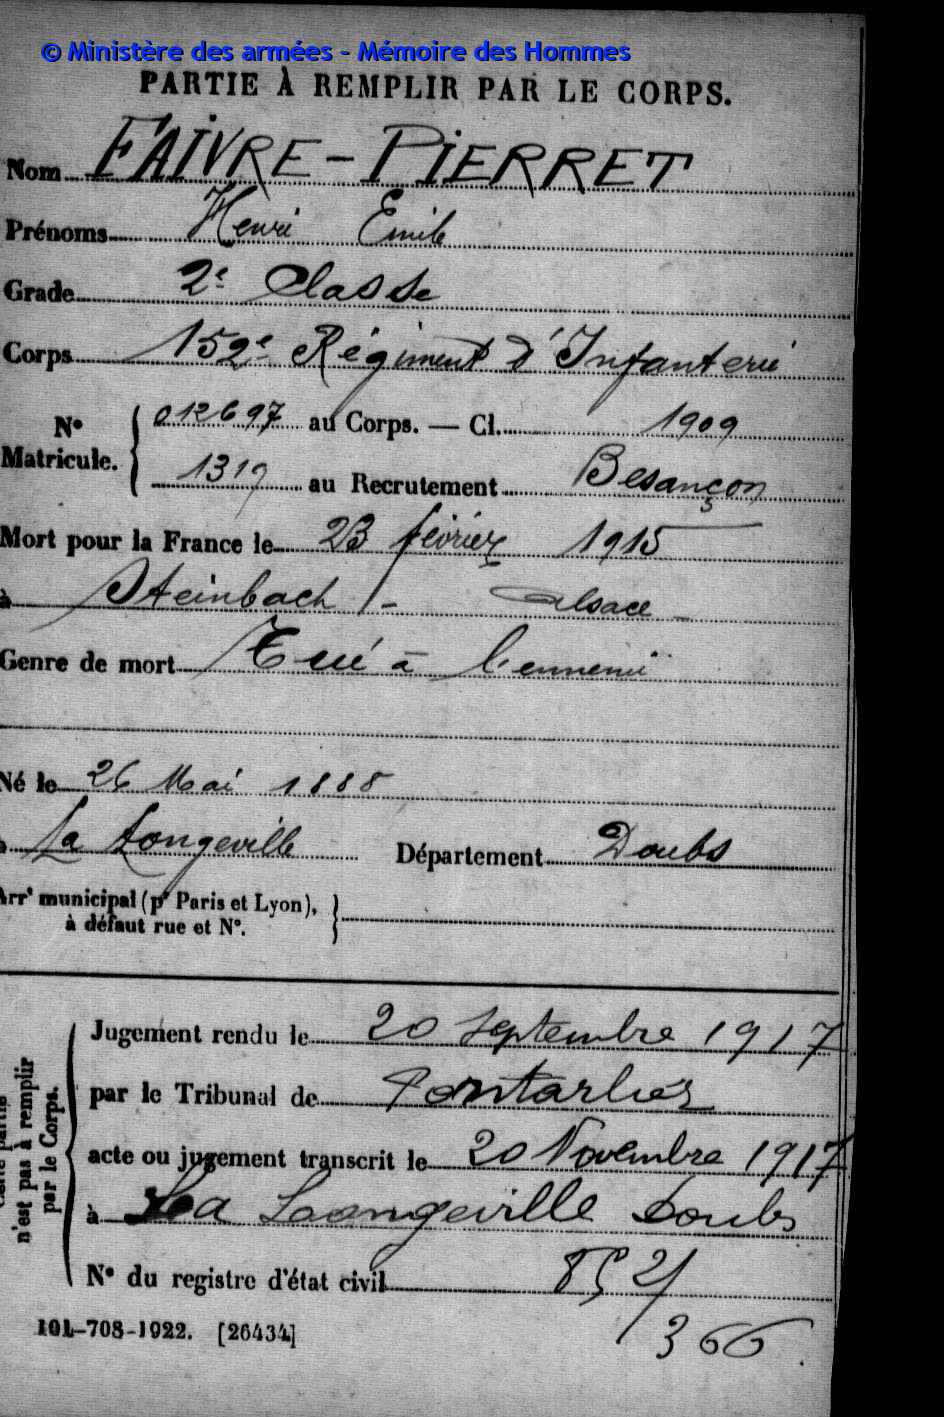 © Ministère des armées - Mémoire des Hommes
PARTIE À REMPLIR PAR LE CORPS.
Nom FAIVRE-PIERRET
Prénoms Henri Emile
Grade 2e Classe
Corps 152e Régiment d'Infanterie
N° Matricule. 012697 au Corps. — Cl. 1909
1319 au Recrutement Besançon
Mort pour la France le 23 février 1915
à Steinbach - Alsace -
Genre de mort Tué à l'ennemi
Né le 26 Mai 1888
à La Longeville Département Doubs
Arrt municipal (pr Paris et Lyon),
à défaut rue et N°.
Jugement rendu le 20 Septembre 1917
par le Tribunal de Pontarlier
acte ou jugement transcrit le 20 Novembre 1917
à La Longeville Doubs
N° du registre d'état civil
366
101-708-1922. [26434]
Cette partie
n'est pas à remplir
par le Corps.